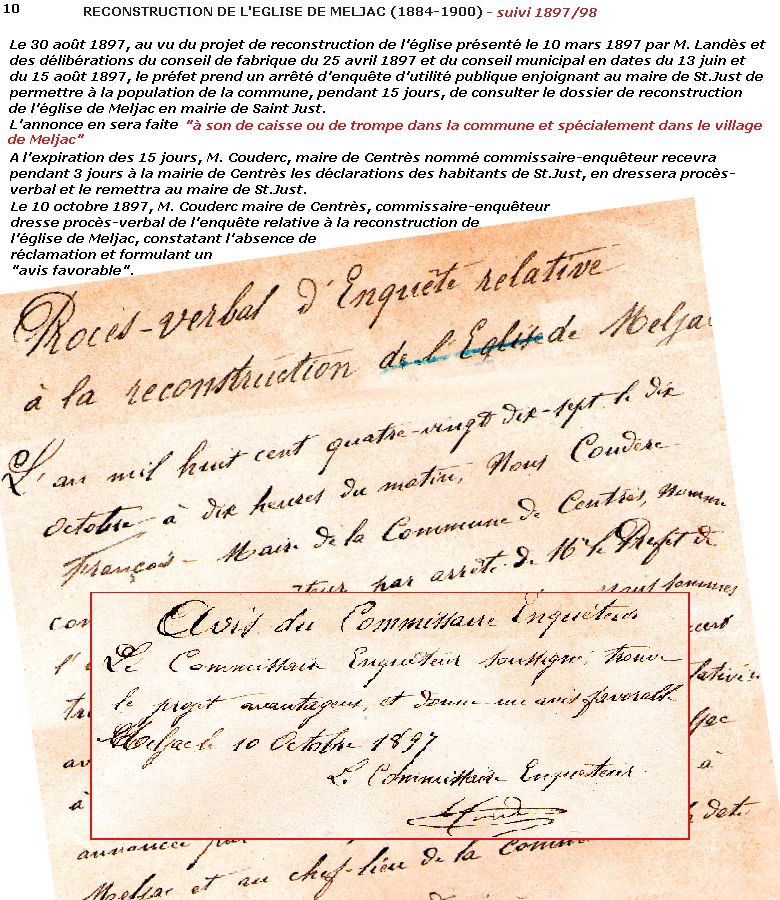 10 RECONSTRUCTION DE L'EGLISE DE MELJAC (1884-1900) - suivi 1897/98
Le 30 août 1897, au vu du projet de reconstruction de l'église présenté le 10 mars 1897 par M. Landès et
des délibérations du conseil de fabrique du 25 avril 1897 et du conseil municipal en dates du 13 juin et
du 15 août 1897, le préfet prend un arrêté d'enquête d'utilité publique enjoignant au maire de St.Just de
permettre à la population de la commune, pendant 15 jours, de consulter le dossier de reconstruction
de l'église de Meljac en mairie de Saint Just.
L'annonce en sera faite "à son de caisse ou de trompe dans la commune et spécialement dans le village
de Meljac"
A l'expiration des 15 jours, M. Couderc, maire de Centrès nommé commissaire-enquêteur recevra
pendant 3 jours à la mairie de Centrès les déclarations des habitants de St.Just, en dressera procès-
verbal et le remettra au maire de St.Just.
Le 10 octobre 1897, M. Couderc maire de Centrès, commissaire-enquêteur
dresse procès-verbal de l'enquête relative à la reconstruction de
l'église de Meljac, constatant l'absence de
réclamation et formulant un
"avis favorable".
Procès-verbal d'Enquête relative
à la reconstruction de l'Eglise de Meljac
L'an mil huit cent quatre-vingt dix-sept le dix
Octobre à dix heures du matin, Nous Couderc
François - Maire de la Commune de Centrès, nommé
par arrêté de Mr le Préfet de
nous sommes
Avis du Commissaire Enquêteur
Le Commissaire Enquêteur soussigné, trouve
le projet avantageux, et donne un avis favorable
Meljac le 10 Octobre 1897
Le Commissaire Enquêteur
à
annoncée
Meljac et au chef-lieu de la